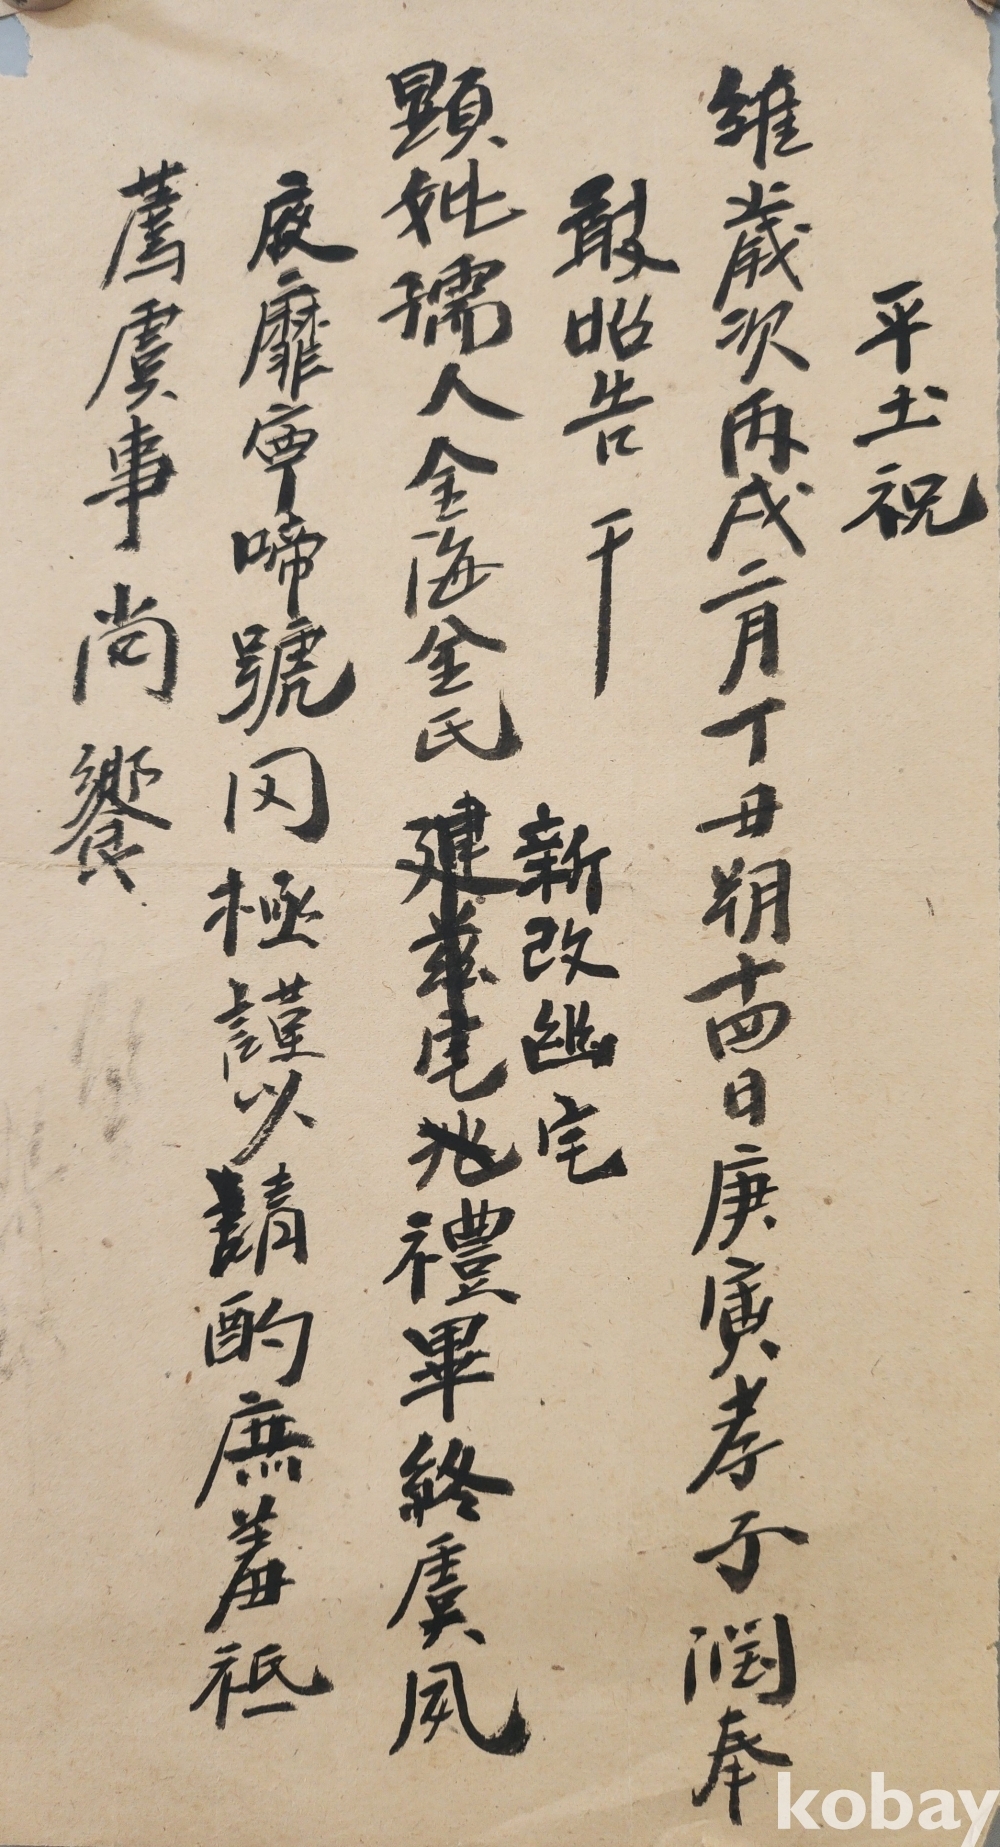 平土祝
維歲次丙戌二月丁丑朔十四日庚寅孝子潤奉
敢昭告于
顯妣孺人金海金氏建玆宅兆禮畢終虞夙
新改幽宅
夜靡寧啼號罔極謹以請酌庶羞祗
薦虞事尙饗
kobay